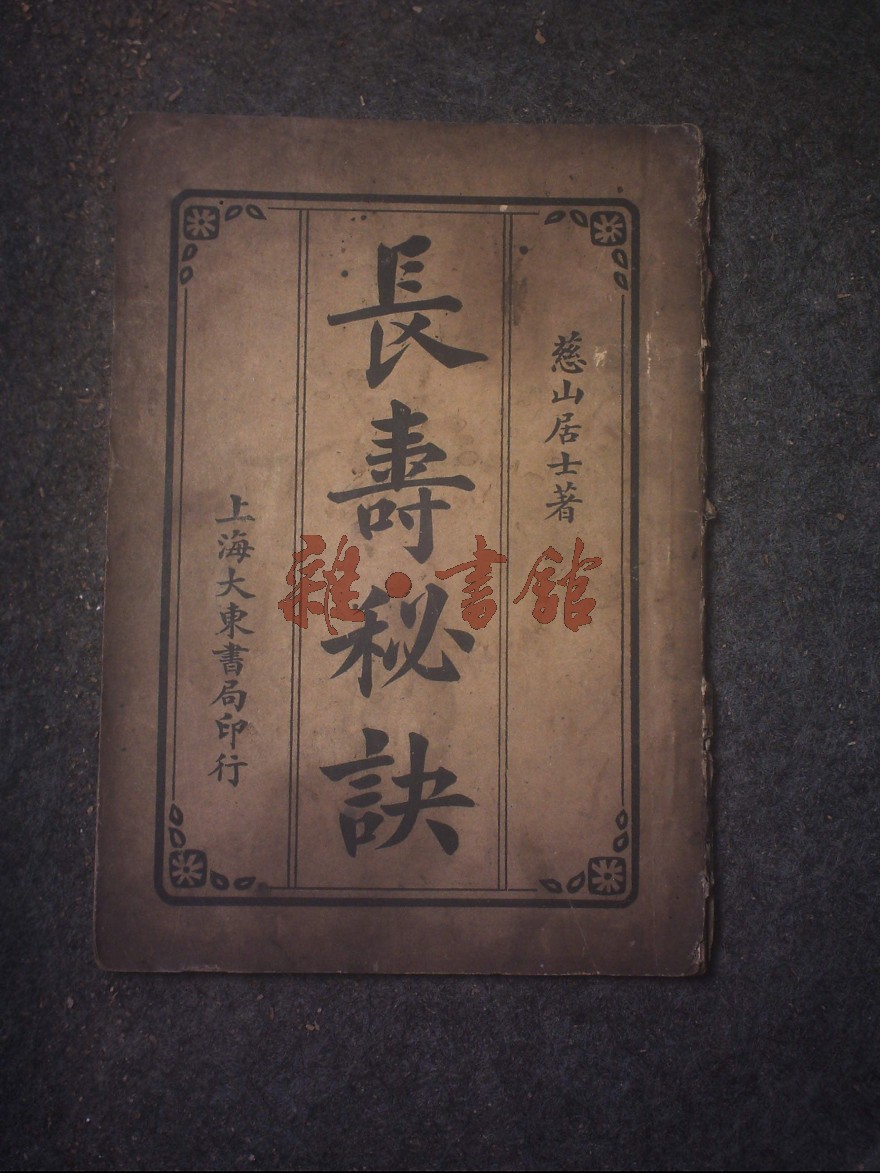 慈山居士著
長壽秘訣
上海大東書局印行
雜·書館